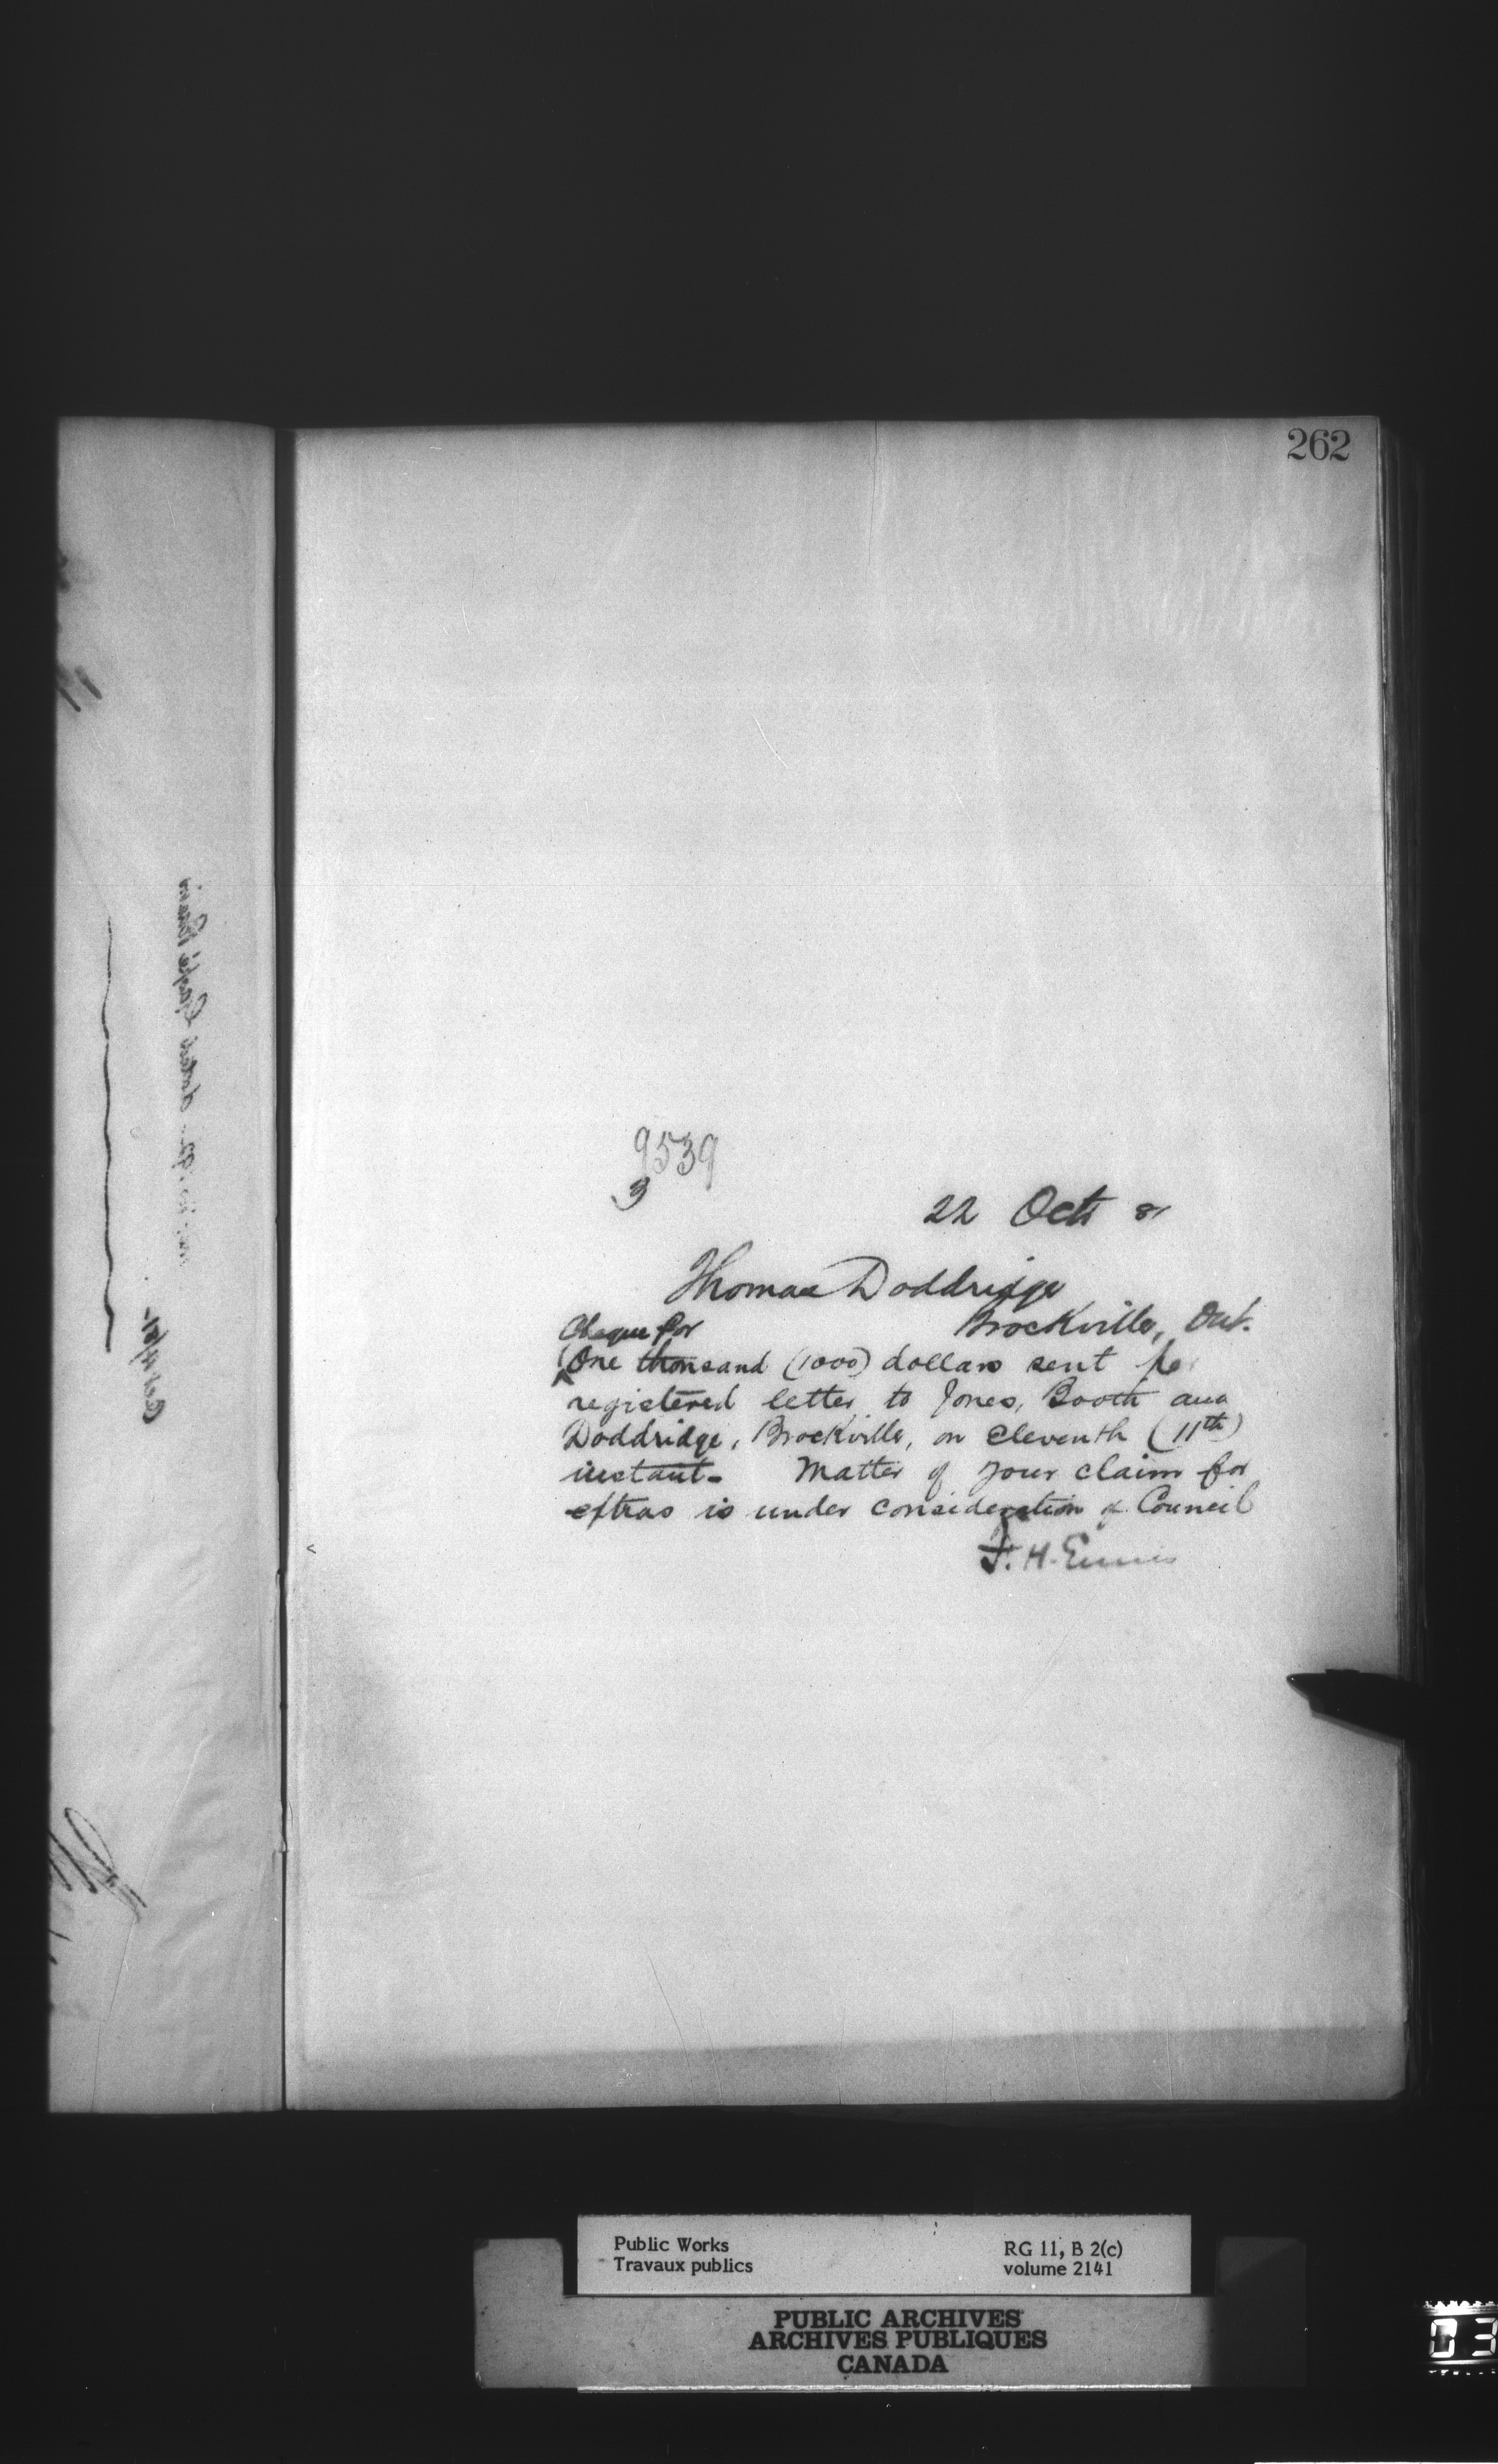 262
9539
3
22 Oct 81
Thomas Doddridge
Brockville, Ont.
Cheque for
One thousand (1000) dollars sent per
registered letter to Jones, Booth and
Doddridge, Brockville, on eleventh (11th)
instant- Matter of your claim for
extras is under consideration of Council
F. H. Ennis
Public Works
Travaux publics
RG 11, B 2(c)
volume 2141
PUBLIC ARCHIVES
ARCHIVES PUBLIQUES
CANADA
03